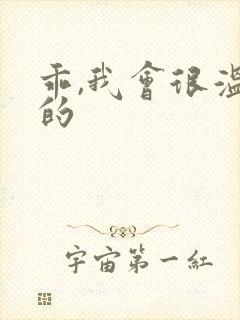 乖,我會很溫
的
宇宙第一紅